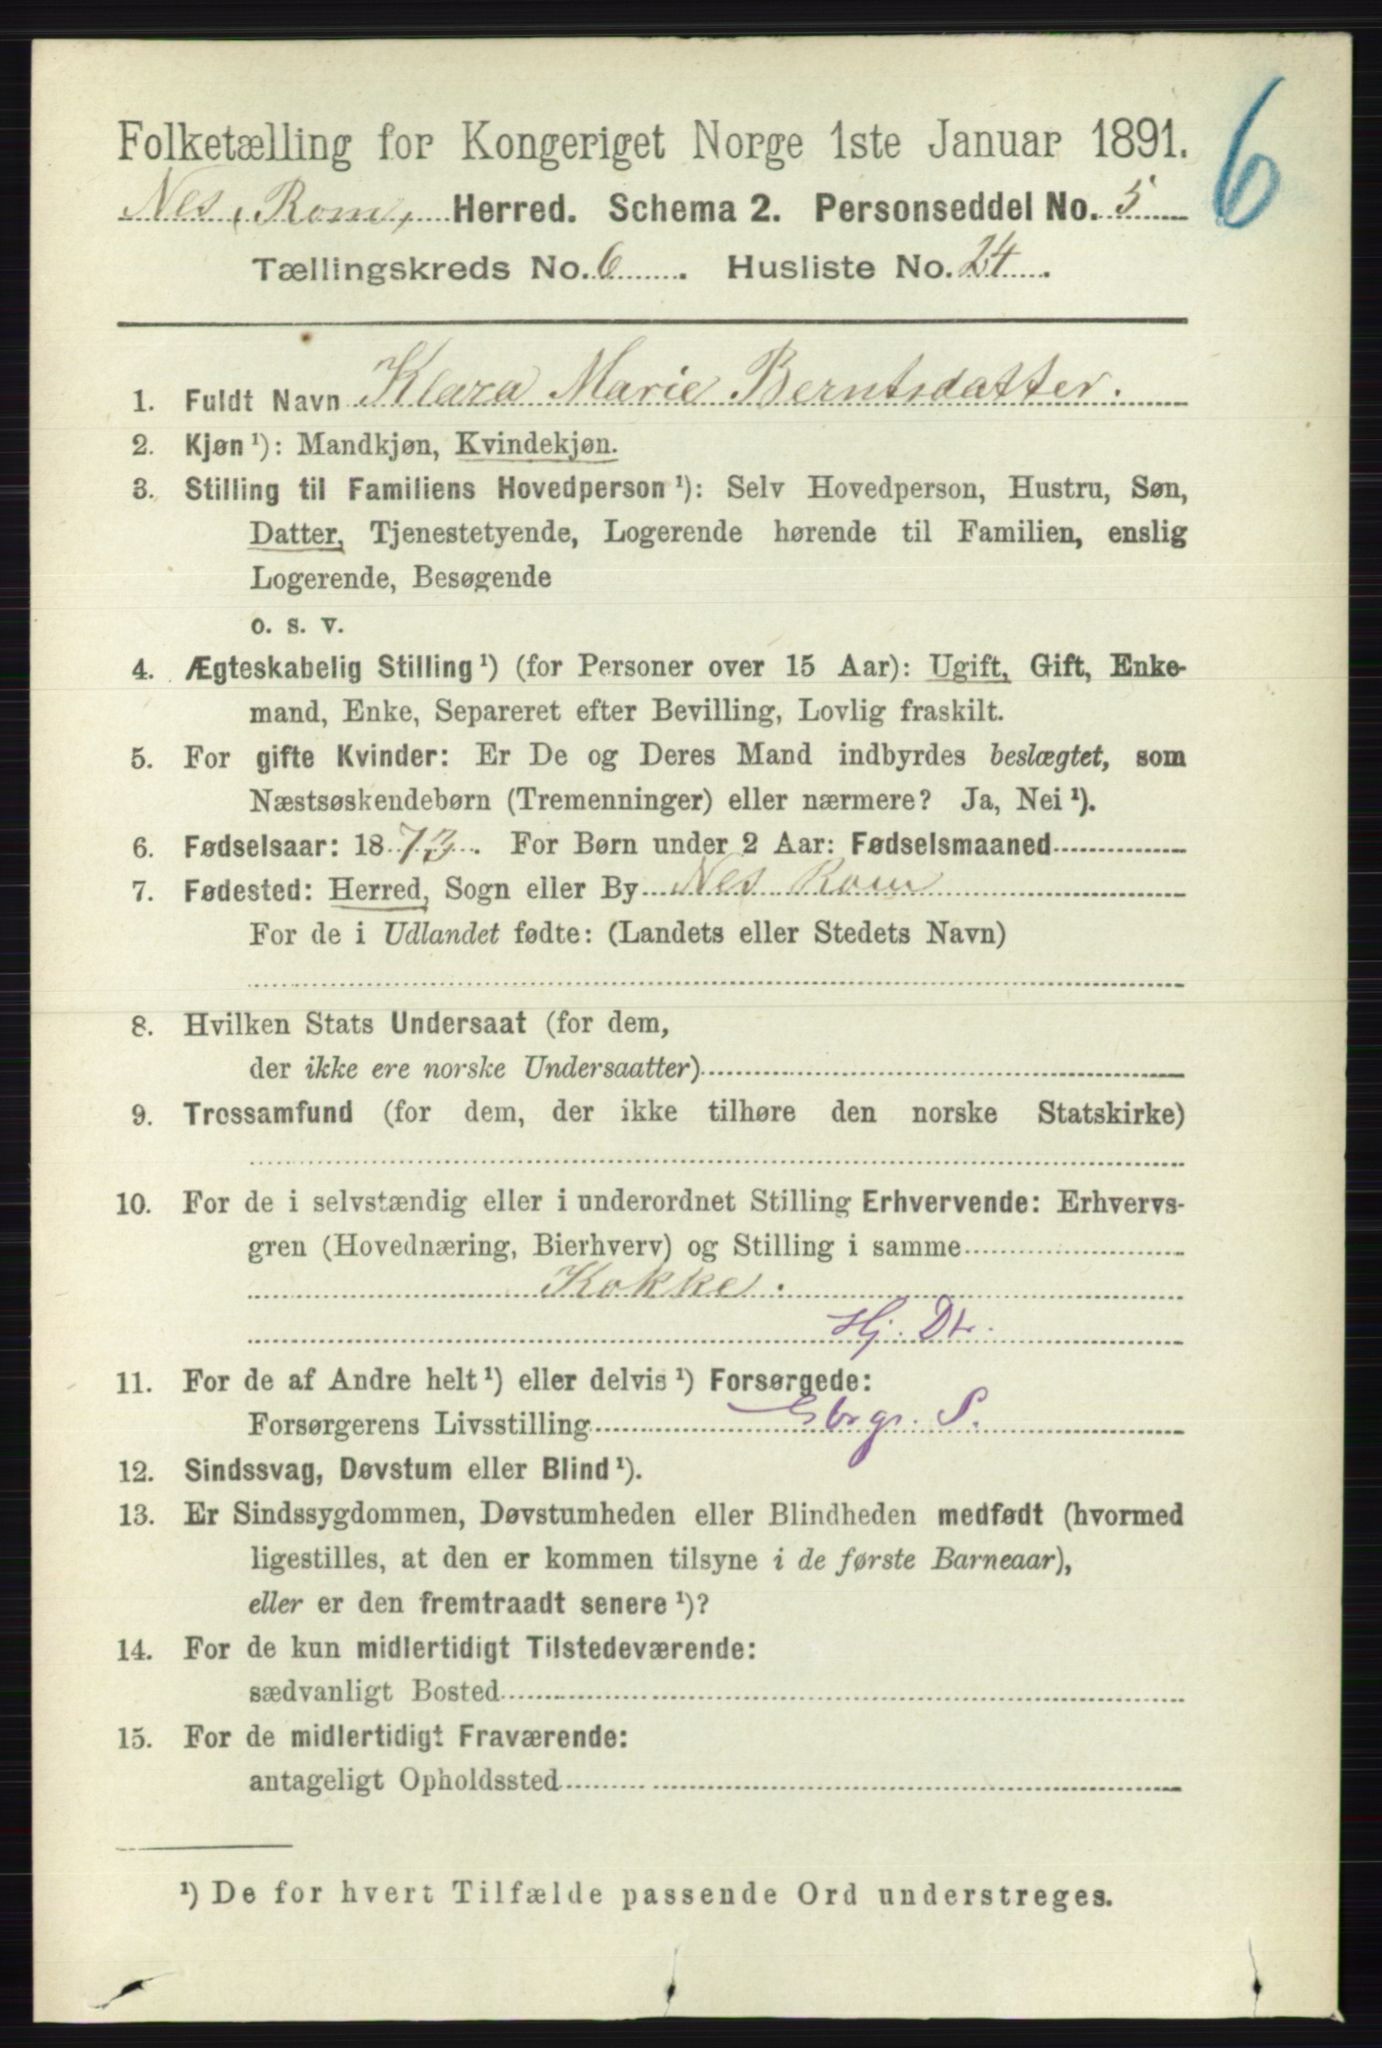 Folketælling for Kongeriget Norge 1ste Januar 1891.
6
Nes, Rom, Herred. Schema 2. Personseddel No. 5
Tællingskreds No. 6. Husliste No. 24.
1. Fuldt Navn Klara Marie Berntsdatter.
2. Kjøn ¹): Mandkjøn, Kvindekjøn.
3. Stilling til Familiens Hovedperson ¹): Selv Hovedperson, Hustru, Søn,
Datter, Tjenestetyende, Logerende hørende til Familien, enslig
Logerende, Besøgende
o. s. v.
4. Ægteskabelig Stilling ¹) (for Personer over 15 Aar): Ugift, Gift, Enke-
mand, Enke, Separeret efter Bevilling, Lovlig fraskilt.
5. For gifte Kvinder: Er De og Deres Mand indbyrdes beslægtet, som
Næstsøskendebørn (Tremenninger) eller nærmere? Ja, Nei ¹).
6. Fødselsaar: 1873. For Børn under 2 Aar: Fødselsmaaned
7. Fødested: Herred, Sogn eller By Nes Rom
For de i Udlandet fødte: (Landets eller Stedets Navn)
8. Hvilken Stats Undersaat (for dem,
der ikke ere norske Undersaatter)
9. Trossamfund (for dem, der ikke tilhøre den norske Statskirke)
10. For de i selvstændig eller i underordnet Stilling Erhvervende: Erhvervs-
gren (Hovednæring, Bierhverv) og Stilling i samme
Kokke.
Hj. Dt.
11. For de af Andre helt ¹) eller delvis ¹) Forsørgede:
Forsørgerens Livsstilling Gbrgr. S.
12. Sindssvag, Døvstum eller Blind ¹).
13. Er Sindssygdommen, Døvstumheden eller Blindheden medfødt (hvormed
ligestilles, at den er kommen tilsyne i de første Barneaar),
eller er den fremtraadt senere ¹)?
14. For de kun midlertidigt Tilstedeværende:
sædvanligt Bosted
15. For de midlertidigt Fraværende:
antageligt Opholdssted
¹) De for hvert Tilfælde passende Ord understreges.